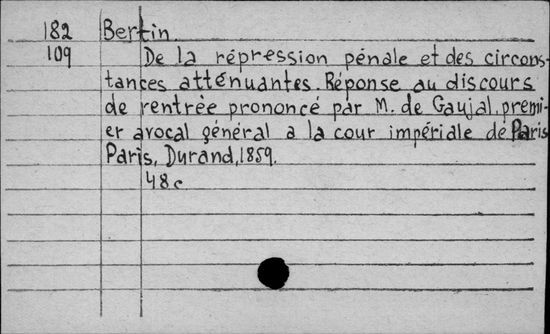 182 Bertin.
109 De la répression pénale et des circons-
tances atténuantes. Réponse au discours
de rentrée prononcé par M. de Gaujal, premi-
er avocal général a la cour impériale de Paris
Paris, Durand, 1859.
48c